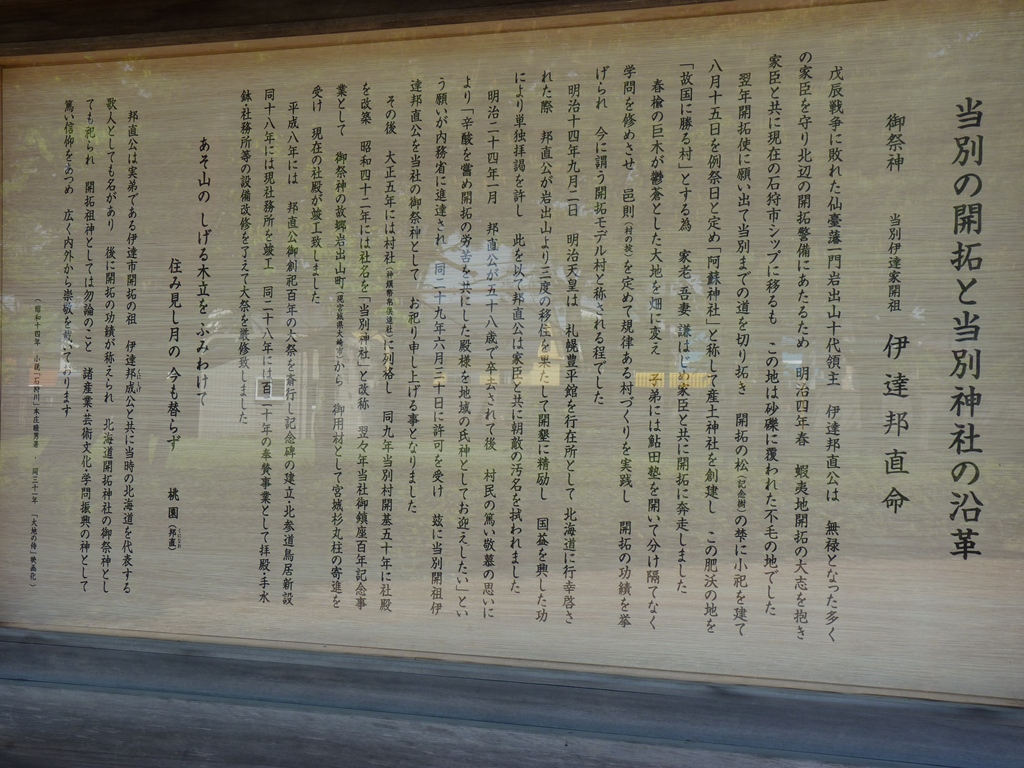 当別の開拓と当別神社の沿革
御祭神　当別伊達家開祖　伊達邦直命
戊辰戦争に敗れた仙臺藩一門岩出山十代領主　伊達邦直公は　無禄となった多く
の家臣を守り北辺の開拓警備にあたるため　明治四年春　蝦夷地開拓の大志を抱き
家臣と共に現在の石狩市シップに移るも　この地は砂礫に覆われた不毛の地でした
翌年開拓使に願い出て当別までの道を切り拓き　開拓の松（記念樹）の埜に小祀を建て
八月十五日を例祭日と定め「阿蘇神社」と称して産土神社を創建し　この肥沃の地を
「故国に勝る村」とする為　家老　吾妻　謙はじめ家臣と共に開拓に奔走しました
春楡の巨木が鬱蒼とした大地を畑に変え　子弟には鮎田塾を開いて分け隔てなく
学問を修めさせ　邑則（村の掟）を定めて規律ある村づくりを実践し　開拓の功績を挙
げられ　今に謂う開拓モデル村と称される程でした
明治十四年九月二日　明治天皇は　札幌豊平館を行在所として　北海道に行幸啓さ
れた際　邦直公が岩出山より三度の移住を果たして開墾に精励し　国益を興した功
により単独拝謁を許し　此を以て邦直公は家臣と共に朝敵の汚名を拭われました
明治二十四年一月　邦直公が五十八歳で卒去されて後　村民の篤い敬慕の思いに
より「辛酸を嘗め開拓の労苦を共にした殿様を地域の氏神としてお迎えしたい」とい
う願いが内務省に進達され　同二十九年六月三十日に許可を受け　玆に当別開祖伊
達邦直公を当社の御祭神として　お祀り申し上げる事となりました
その後　大正五年には村社（神饌幣帛供進社）に列格し　同九年当別村開基五十年に社殿
を改築　昭和四十二年には社名を「当別神社」と改称　翌々年当社御鎮座百年記念事
業として　御祭神の故郷岩出山町（現宮城県大崎市）から　御用材として宮城杉丸柱の寄進を
受け　現在の社殿が竣工致しました
平成八年には　邦直公御創祀百年の大祭を斎行し記念碑の建立・北参道鳥居新設
同十八年には現社務所を竣工　同二十八年には百二十年の奉賛事業として拝殿・手水
鉢・社務所等の設備改修を了えて大祭を厳修致しました
あそ山の　しげる木立を　ふみわけて
住み見し月の　今も替らず　　桃園（邦直）
邦直公は実弟である伊達市開拓の祖　伊達邦成公と共に当時の北海道を代表する
歌人としても名があり　後に開拓の功績が称えられ　北海道開拓神社の御祭神とし
ても祀られ　開拓祖神としては勿論のこと　諸産業・芸術文化・学問振興の神として
篤い信仰をあつめ　広く内外から崇敬を戴いております
（昭和十四年　小説「石狩川」本庄睦男著　・　同三十一年　「大地の侍」映画化）